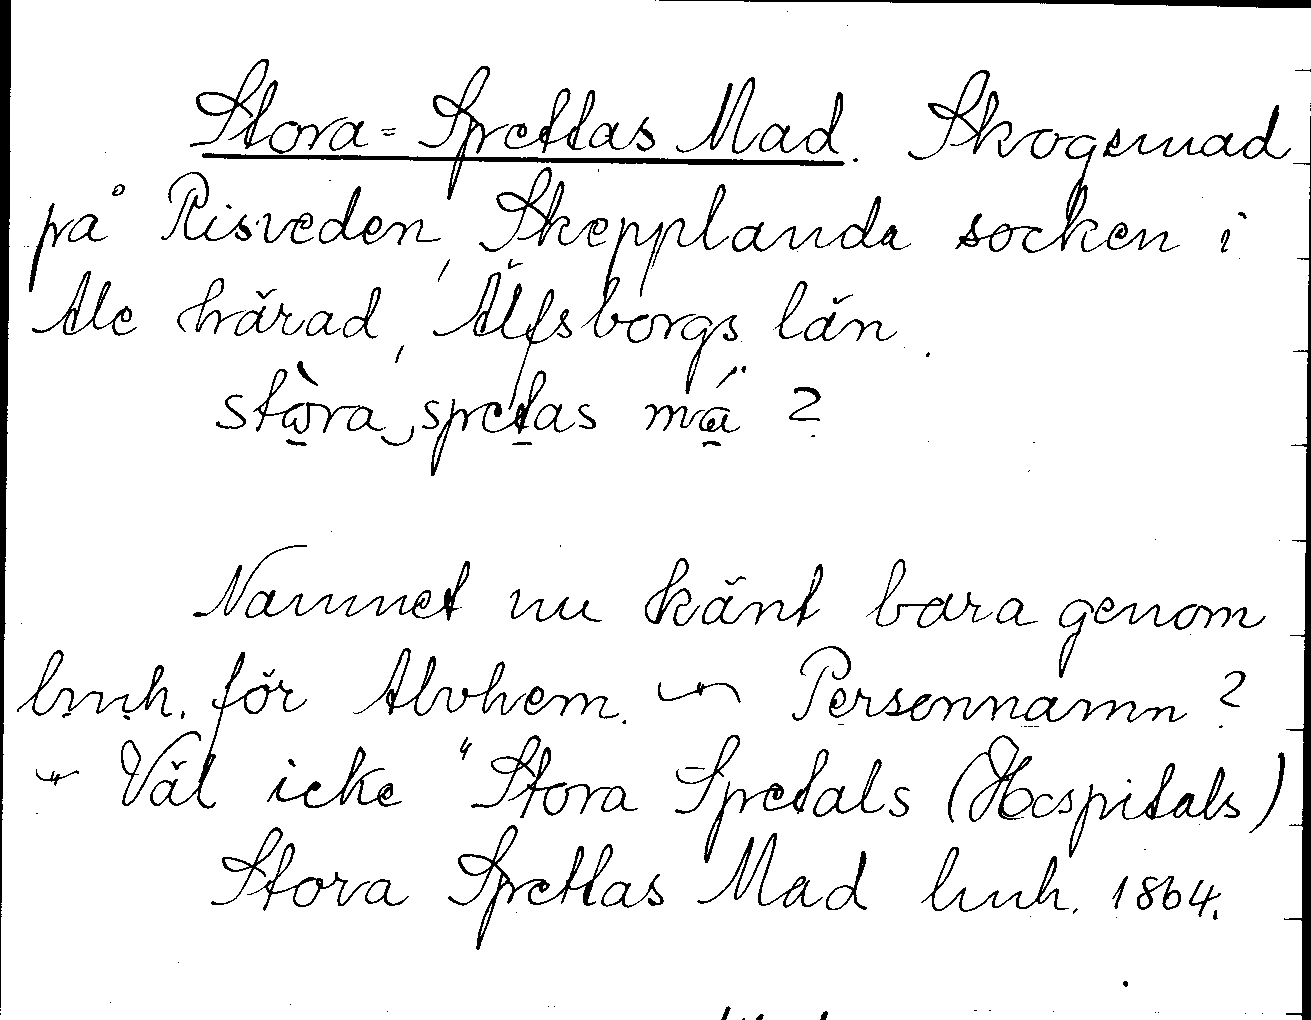 Stora-Sprettas Mad. Skogsmad
på Risveden, Skepplanda socken i
Ale härad, Älfsborgs län.
stòra spretas má ?
Namnet nu känt bara genom
lmh. för Alvhem. — Personnamn ?
— Väl icke "Stora Spretals (Hospitals)
Stora Sprettas Mad lmh. 1864.